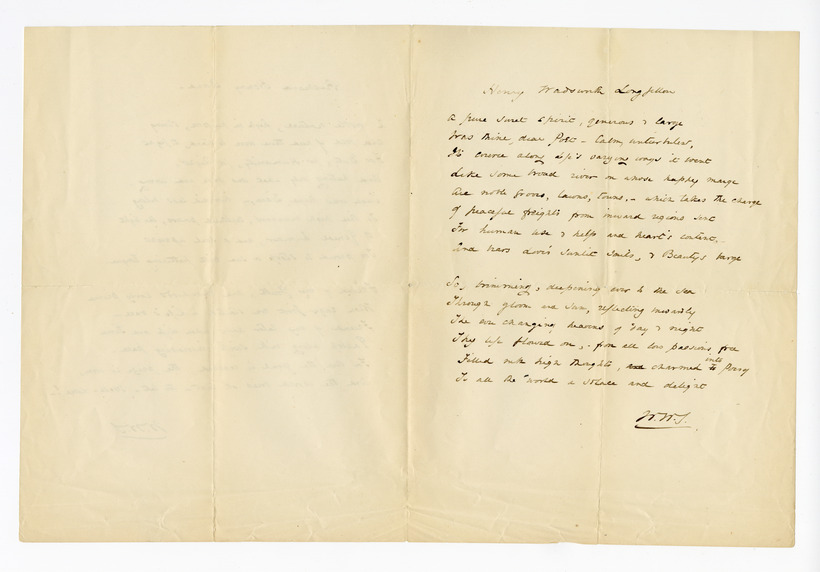 Henry Wadsworth Longfellow
A pure sweet spirit, generous & large
Was thine, dear Poet - Calm, unturbulent,
Its course along life's varying ways it went
Like some broad river on whose happy marge
Are noble groves, lawns, towns, - which takes the charge
Of peaceful freights from inward regions sent
For human use & help and heart's content,
And bears Love's sunlit smiles, & Beauty's barge
So, brimming, deepening ever to the sea
Through gloom and sun, reflecting inwardly
The ever changing heavens of day & night
Thy life flowed on, - from all low passions free
Filled with high thoughts, and charmed to into Poesy
To all the world a solace and delight
W.W.S.